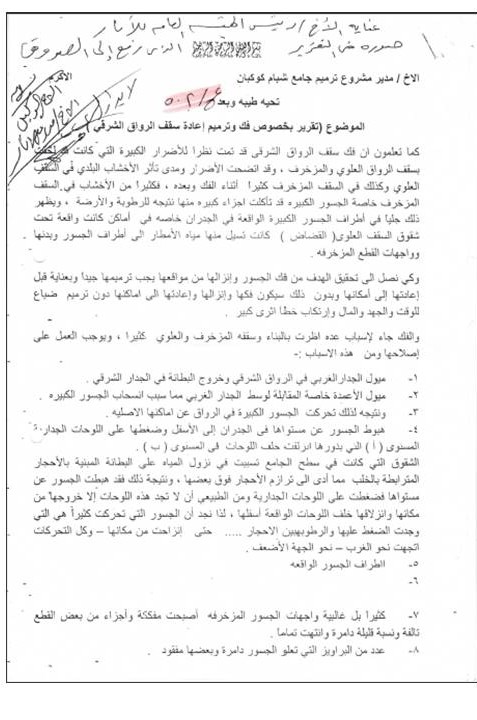 عناية الأخ / رئيس الهيئة العامة للآثار
صورة من التقرير الذي رفع إلى الصندوق
الاخ / مدير مشروع ترميم جامع شبام كوكبان
تحيه طيبه وبعد
الموضوع (تقرير بخصوص فك وترميم إعادة سقف الرواق الشرقي )
كما تعلمون ان فك سقف الرواق الشرقي قد تمت نظرا للأضرار الكبيرة التي كانت
بسقف الرواق العلوي والمزخرف ، وقد اتضحت الأضرار ومدى تأثر الأخشاب البلدي في السقف
العلوي وكذلك في السقف المزخرف كثيراً أثناء الفك وبعده ، فكثيراً من الأخشاب في السقف
المزخرف خاصة الجسور الكبيره قد تآكلت اجزاء كبيره منها نتيجه للرطوبة والأرضة ، ويظهر
ذلك جلياً في اطراف الجسور الكبيرة الواقعة في الجدران خاصه في أماكن كانت واقعة تحت
شقوق السقف العلوي( القضاض ) كانت تسيل منها مياه الأمطار الى أطراف الجسور وبدنها
وواجهات القطع المزخرفه .
وكي نصل الى تحقيق الهدف من فك الجسور وإنزالها من مواقعها يجب ترميمها جيداً وبعناية قبل
إعادتها إلى أمكانها وبدون ذلك سيكون فكها وإنزالها وإعادتها الى اماكنها دون ترميم ضياع
للوقت والجهد والمال وإرتكاب خطأ اثرى كبير .
والفك جاء لإسباب عده اظرت بالبناء وسقفه المزخرف والعلوي كثيرا ، ويوجب العمل على
إصلاحها ومن هذه الاسباب :-
١- ميول الجدارالغربي في الرواق الشرقي وخروج البطانة في الجدار الشرقي .
٢- ميول الأعمدة خاصة المقابلة لوسط الجدار الغربي مما سبب انسحاب الجسور الكبيره .
٣- ونتيجه لذلك تحركت الجسور الكبيرة في الرواق عن اماكنها الاصليه .
٤- هبوط الجسور عن مستواها في الجدران إلى الأسفل وضغطها على اللوحات الجدارية
المستوى ( أ ) التي بدورها انزلقت خلف اللوحات في المستوى ( ب ) .
الشقوق التي كانت في سطح الجامع تسببت في نزول المياه على البطانة المبنية بالأحجار
المترابطة بالخلب مما أدى الى ترازم الأحجار فوق بعضها ، ونتيجة لذلك فقد هبطت الجسور عن
مستواها فضغطت على اللوحات الجدارية ومن الطبيعي أن لا تجد هذه اللوحات إلا خروجها من
مكانها وانزلاقها خلف اللوحات الواقعة أسفلها ، لذا نجد أن الجسور التي تحركت كثيراً هي التي
وجدت الضغط عليها والرطوبهبين الاحجار ..... حتى إنزاحت من مكانها – وكل التحركات
اتجهت نحو الغرب – نحو الجهة الأضعف .
٥- ااطراف الجسور الواقعه
٦-
٧- كثيراً بل غالبية واجهات الجسور المزخرفه أصبحت مفككة وأجزاء من بعض القطع
تالفة ونسبة قليلة دامرة وانتهت تماماً .
٨- عدد من البراويز التي تعلو الجسور دامرة وبعضها مفقود .